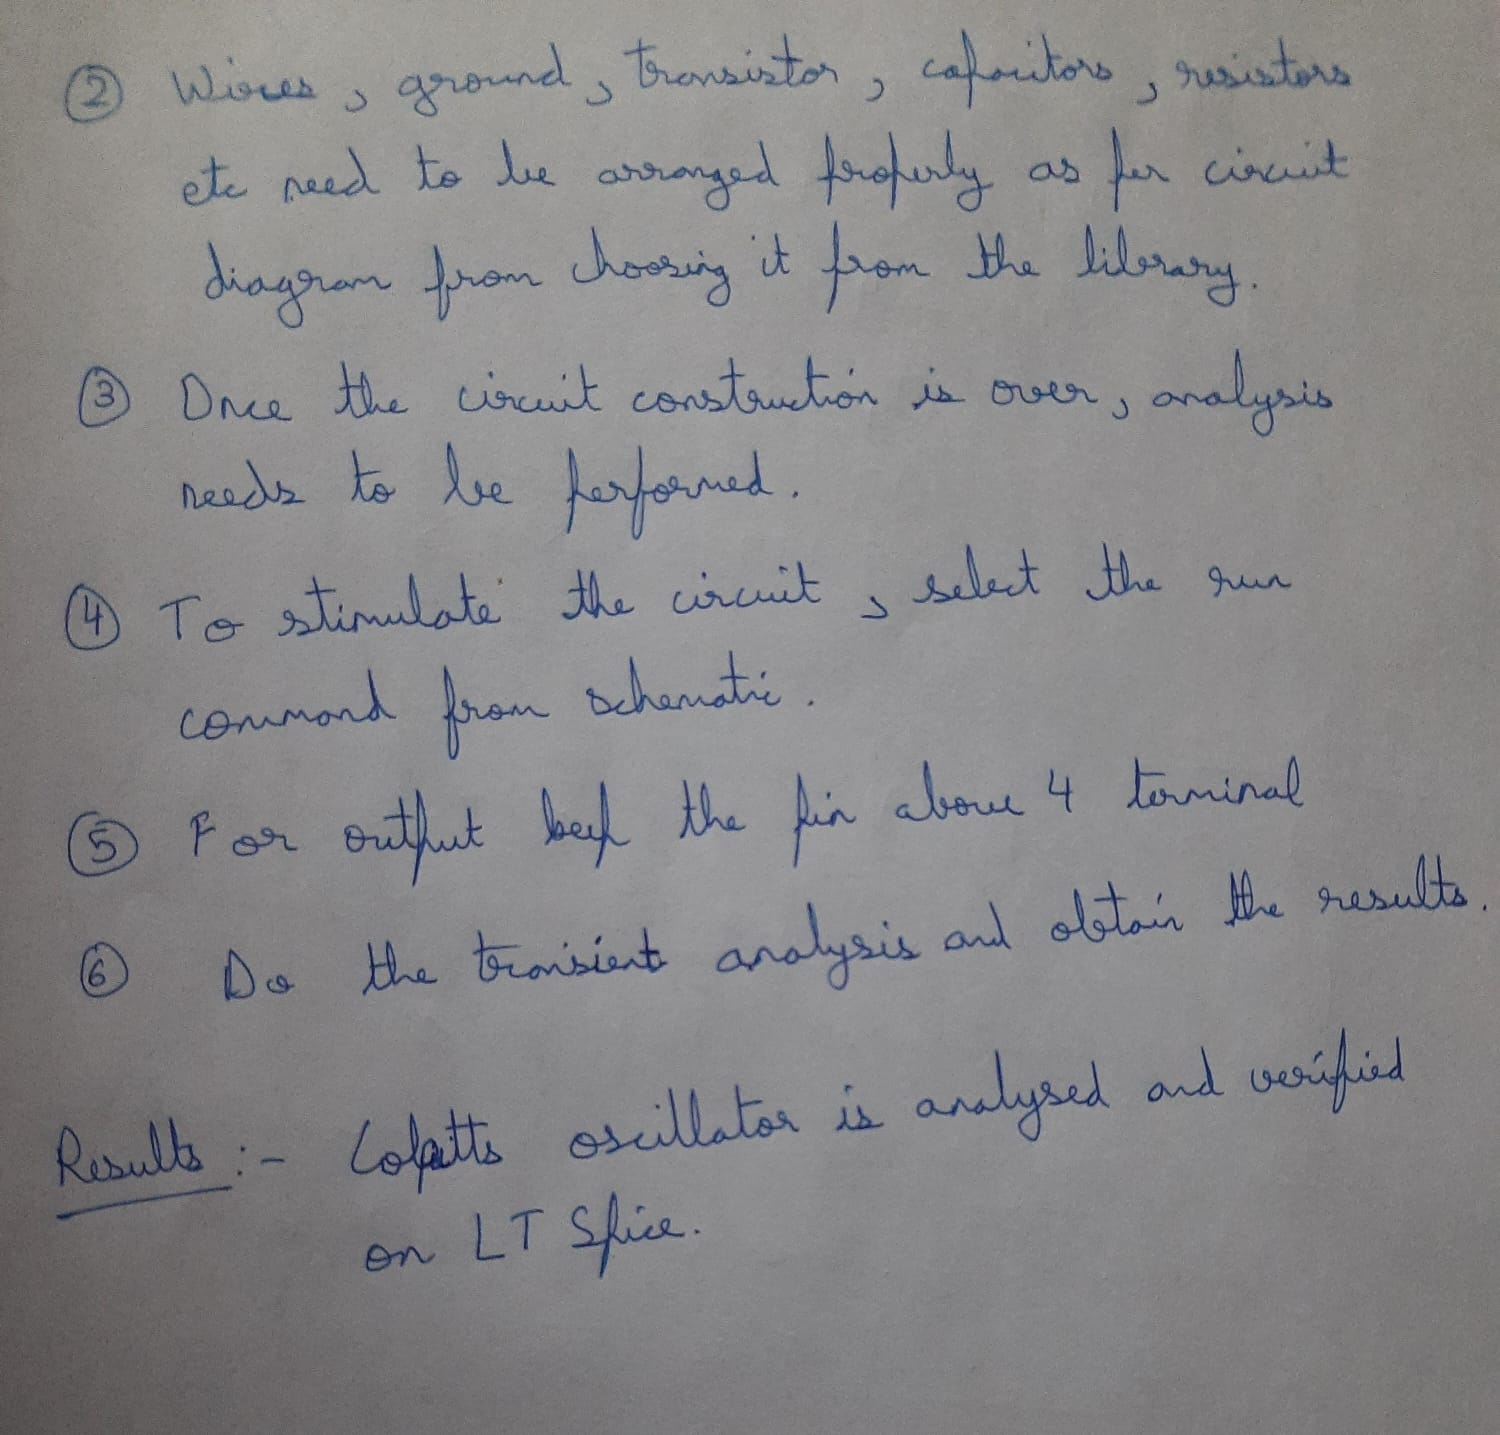 ② Wires, ground, transistor, capacitors, resistors
etc need to be arranged properly as per circuit
diagram from choosing it from the library.
③ Once the circuit construction is over, analysis
needs to be performed.
④ To stimulate the circuit, select the run
command from schematic.
⑤ For output keep the pin above 4 terminal
⑥ Do the transient analysis and obtain the results.
Results :- Colpitts oscillator is analysed and verified
on LT Spice.